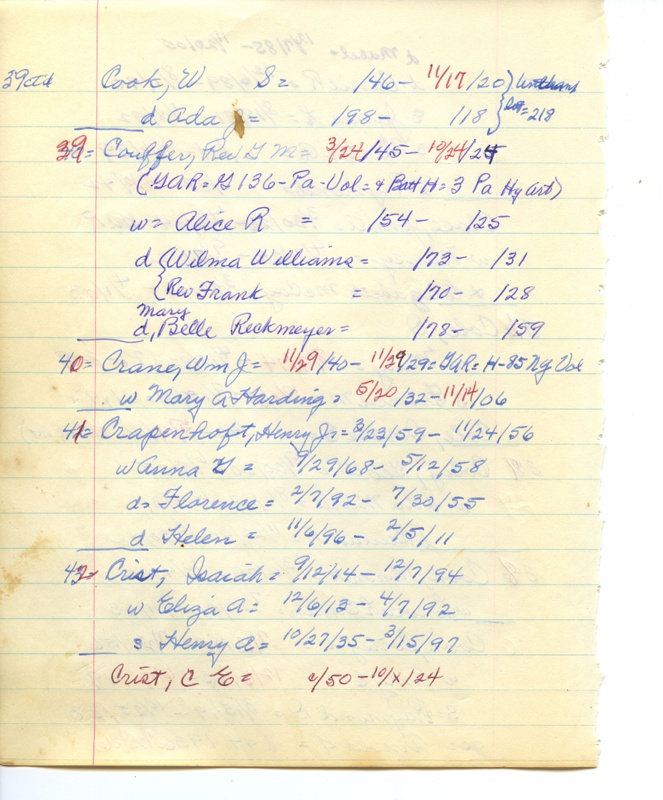 39ctd Cook, W S= /46- 11/17/20
d Ada J= /98- /18 Lot=218
39= Couffer, Rev G M= 3/24/45- 10/24/24
(GAR=G 136-Pa-Vol= & Batt H=3 Pa Hy Art)
w= Alice R = /54- /25
d Wilma Williams= /73- /31
Rev Frank = /70- /28
Mary
d, Belle Reckmeyer= /78- /59
40= Crane, Wm J= 11/29/40- 11/29/29=GAR=H-85 Ny Vol
w Mary A Harding= 5/20/32-11/14/06
41= Crapenhoft, Henry J= 3/23/59- 11/24/56
w Anna G = 9/29/68- 5/12/58
d= Florence= 2/7/92- 7/30/55
d Helen= 11/6/96- 2/5/11
42= Crist, Isaiah= 9/12/14- 12/7/94
w Eliza A= 12/6/13- 4/7/92
s Henry A= 10/27/35-3/15/97
Crist, C E= c/50-10/x/24